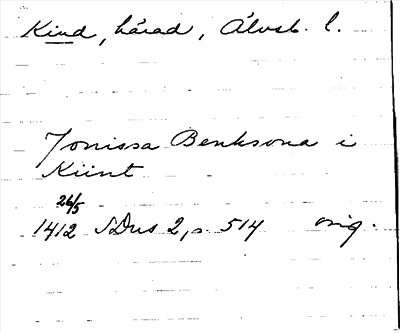 Kind, härad, Älvsb. l.
Jonissa Benksona i
Kiint
26/5
1412 SDns 2, s 514 orig.